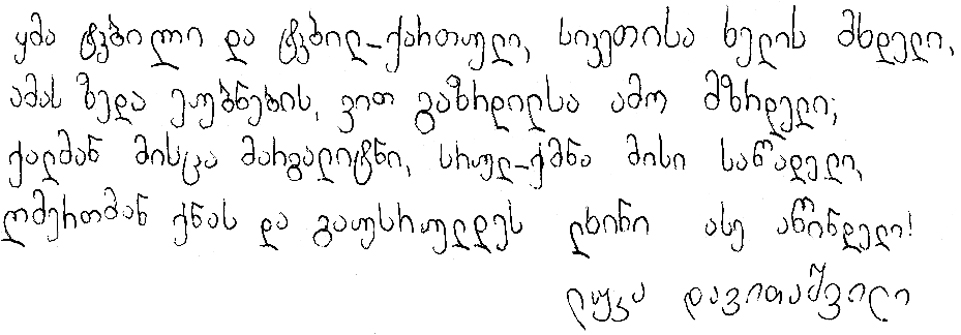 ყმა ტკბილი და ტკბილ-ქართული, სიკეთისა ხელის მხდელი,
ამას ზედა ეუბნების, ვით გაზრდილსა ამო მზრდელი;
ქალმან მისცა მარგალიტნი, სრულ-ქმნა მისი საწადელი,
ღმერთმან ქნას და გაუსრულდეს ლხინი ასე აწინდელი!
ლუკა დავითაშვილი